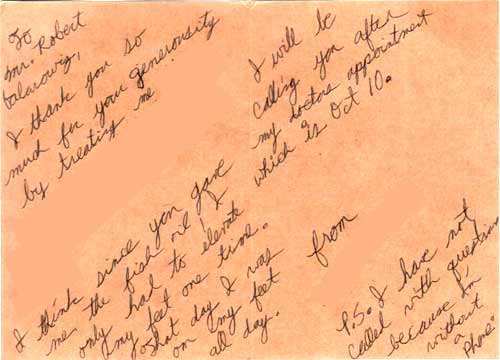 To
Mr. Robert
I thank you so
much for your generousity
by treating me
I think since you gave
me the fish oil I
only had to elevate
my feet one time.
That day I was
on my feet
all day.
I will be
calling you after
my doctors appointment
which is Oct 10.
from
P.S. I have not
called with question
because I'm
without
a
phone.